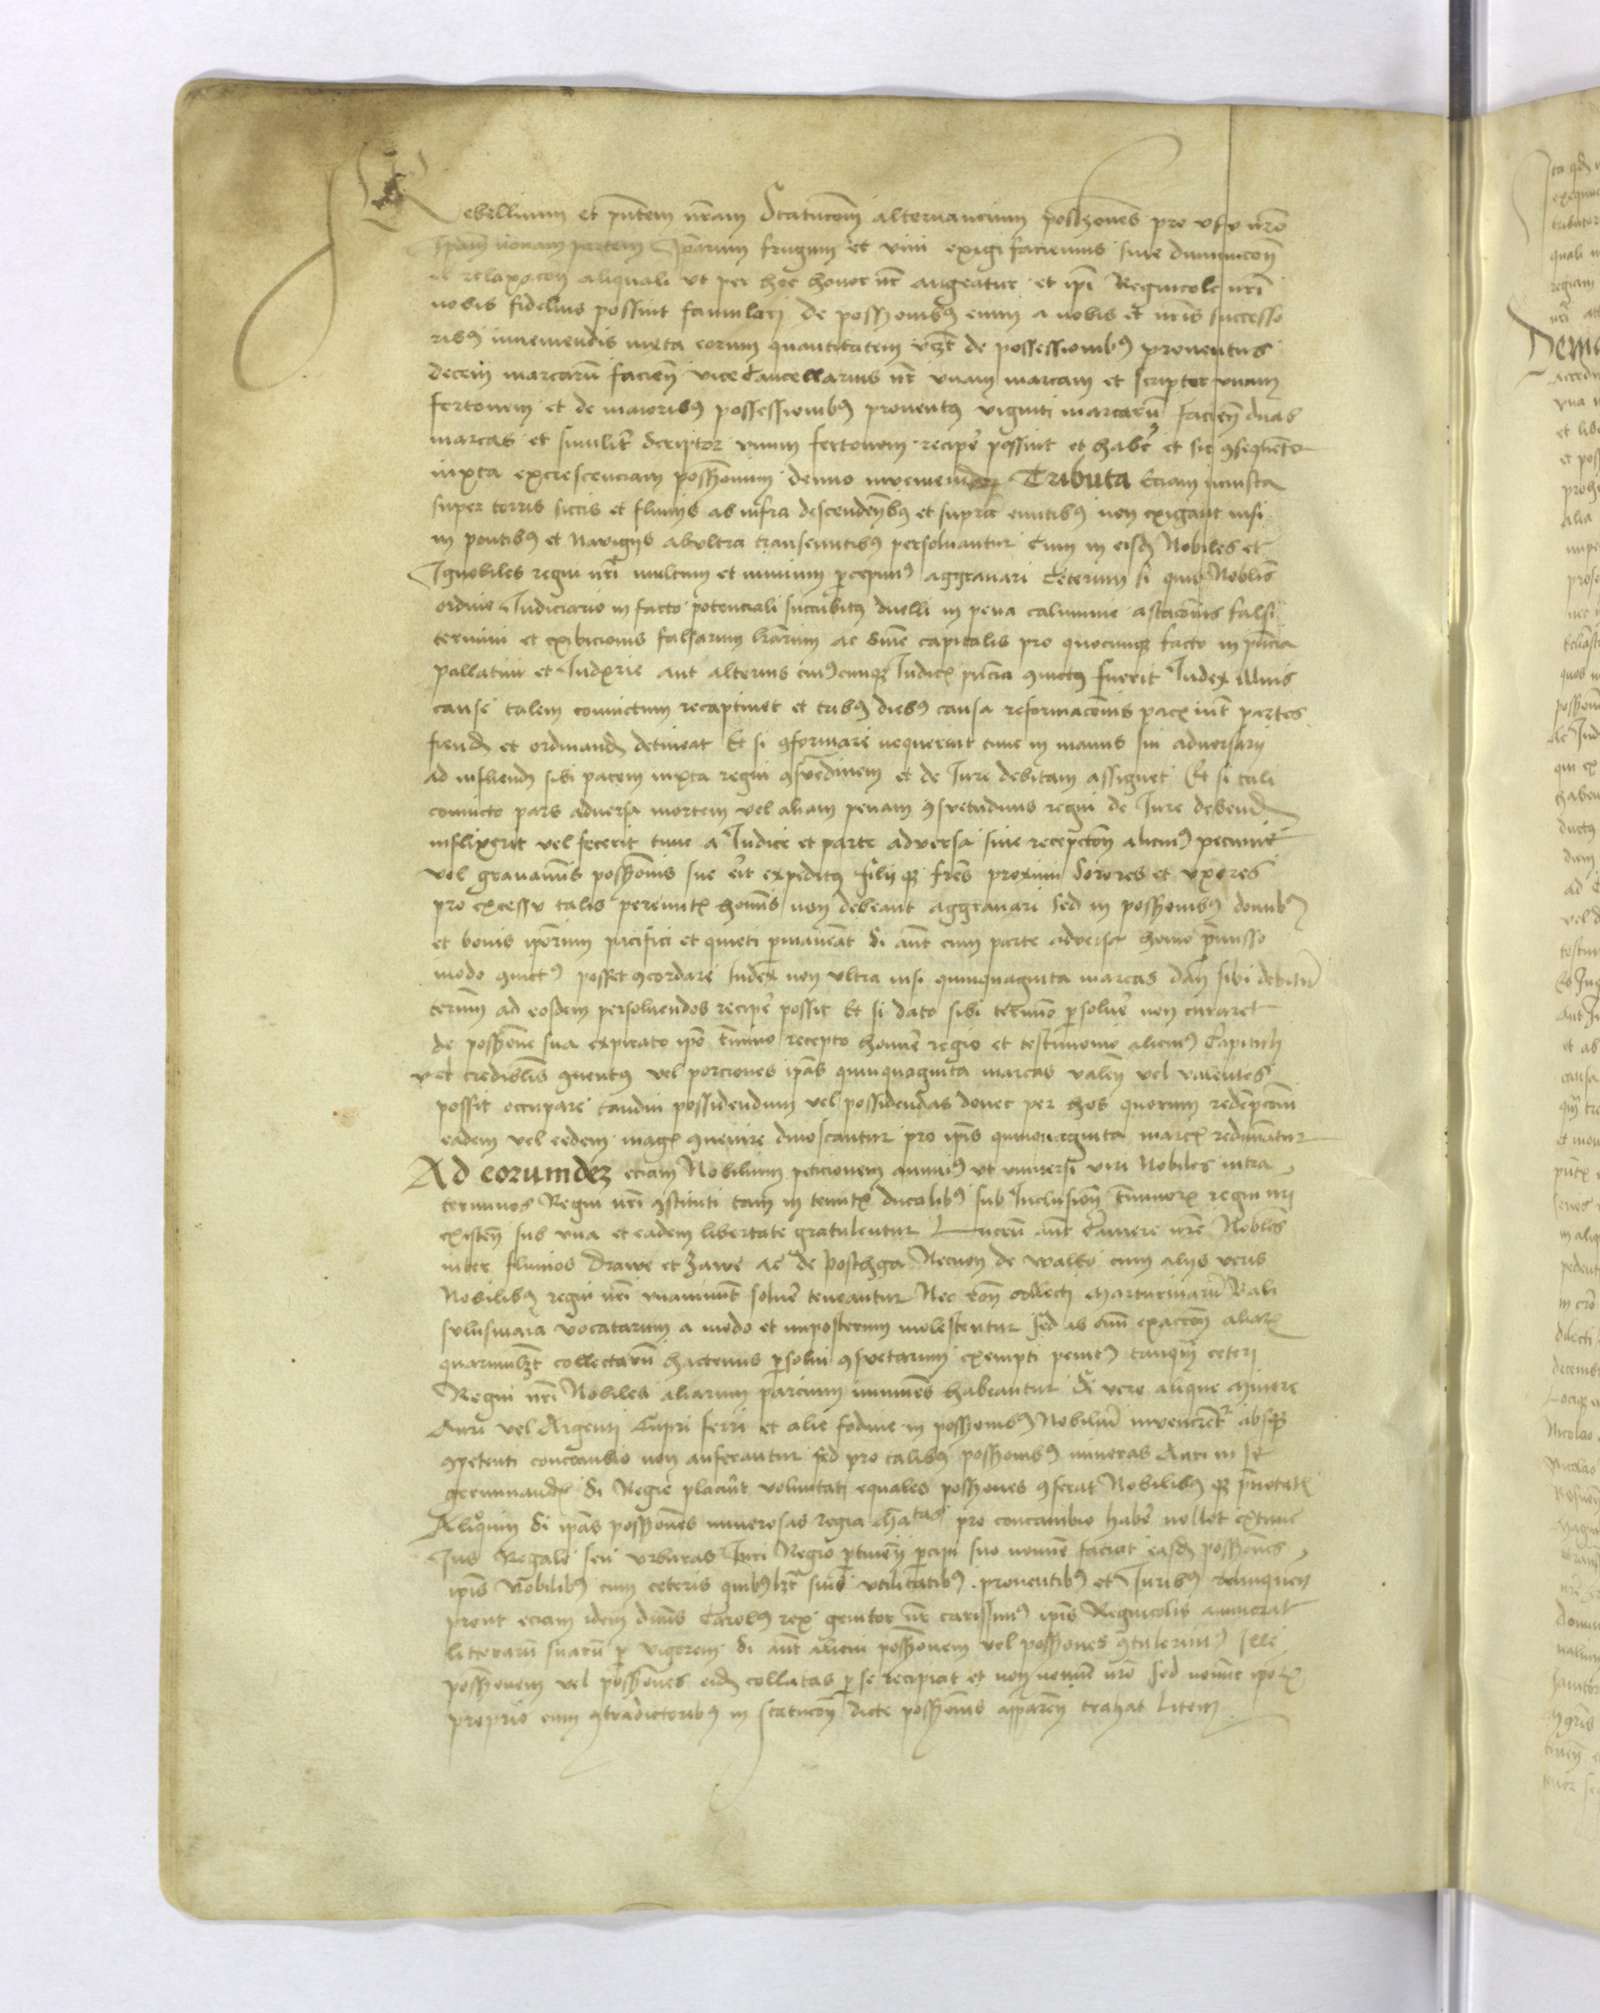 Rebellium et pntem nram Statucom alternancium possessiones pro usu nro
ipam nonam partem ipsarum frugum et vini exigi faciemus sine diminucon
et relaxacon aliquali ut per hoc honor nr augeatur et ipi Regnicole nri
nobis fidelius possint famulari de possessionibus enim a nobis et nris successo
ribus inveniendis iuxta eorum quantitatem vzt de possessionibus proventus
decem marcaru facien vice Cancellarius nr unam marcam et scriptor unum
fertonem et de maioribus possessionibus proventus viginti marcaru facien duas
marcas et similiter Scriptor unum fertonem recipe possint et habe et sic consequenter
iuxta excrescenciam possessionum denuo inveniendar Tributa Eciam iniusta
super terris siccis et fluvijs ab infra descendentibus et supra euntibus non exigant nisi
in pontibus et Navigijs ab ultra transeuntibus persolvantur Cum in eisdem Nobiles et
Ignobiles regni nri multum et nimium percepimus aggravari Ceterum si quis Noblis
ordine Iudiciario in facto potenciali succubitus duelli in pena calumnie astaconis falsi
termini et exibicionis falsarum lrarum ac snie capitalis pro quocunque facto in pncia
pallatini et Iudcurie aut alterius cuiuscunque Iudicis pncia convictus fuerit Iudex illius
cause talem convictum recaptivet et tribus diebus causa reformaconis pacis int partes
fiend et ordinand detineat Et si conformare nequerint tunc in manus sui adversarij
ad infliend sibi patem iuxta regni consvetudinem et de Iure debitam assignet Et si tali
convicto pars adversa mortem vel aliam penam consvetudinis regni de Iure debend
inflixerit vel fecerit tunc a Iudice et parte adversa sine recepcon alicuius pecunie
vel gravaminis possessionis sue erit expeditus filij que fres proximi Sorores et uxores
pro excessu talis pereuntis hominis non debeant aggravari Sed in possessionibus domibus
et bonis ipsorum pacifici et quieti permaneant Si aut cum parte adversa homo premisso
modo convictus posset concordare Iudex non ultra nisi quinquaginta marcas dan sibi debitum
terminum ad eosdem persolvendos recipe possit Et si dato sibi termino persolve non curaret
de possessione sua expirato ipo termino recepto homine regio et testimonio alicuius Capituli
vel credibilis conventus vel porciones ipas quinquaginta marcas valen vel valentes
possit occupare tamdiu possidendum vel possidendas donec per hos quorum redempcom
eadem vel eedem magis convenire dinoscantur pro ipis quinquaginta marcis redimatur
Ad eorumdez eciam Nobilium peticionem annuimus ut universi viri Nobiles intra
terminos Regni nri constituti tam in tenutis ducalibus sub Inclusion terminorum regni nri
existen sub una et eadem libertate gratulentur Lucrum aut Camere nre Nobles
inter fluvios Drawe et Zawe ac de poschga Necnon de walko cum alijs veris
Nobilibus regni nri unanimit solve teneantur Nec ron collecte Marturinaru Bali
solusmaia vocatarum a modo et imposterum molestentur sed ab omni exaccon aliarum
quarumlzt collectaru hactenus persolvi consvetarum exempti penitus tanquam ceteri
Regni nri Nobiles aliarum parcium immunes habeantur Si vero alique Minere
Auri vel Argenti Cupri ferri et alie fodine in possessionibus Nobilium invenirentur absque
competenti concambio non auferantur sed pro talibus possessionibus mineras Auri in se
germinandis Si Regie placuit voluntati equales possessiones conferat Nobilibus que prenotatis
Alioquim Si ipas possessiones minerosas regia Matas pro concambio habe nollet extunc
Ius Regale seu urburas Iuri Regio pertinen percipi suo nomine faciat easdem possessiones
ipis Nobilibus cum ceteris quibuslzt suis utilitatibus proventibus et Iuribus relinquen
prout eciam idem dnus Carolus rex genitor nr carissimus ipis Regnicolis annuerat
litterarum suaru per vigorem Si aut alicui possessionem vel possessiones contulerimus Ille
possessionem vel possessiones eidem collatas per se recipiat et non nomine nro Sed nomine ipo
proprio cum contradictoribus in statucon dicte possessionis apparen trahat litem